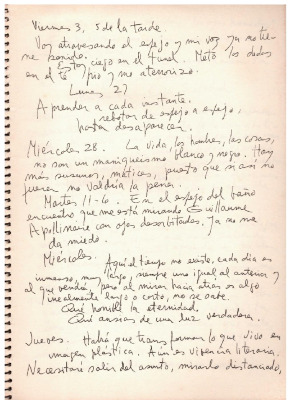 Viernes 3, 5 de la tarde.
Voy atravesando el espejo y mi voz ya no tie-
ne sonido.
Estoy ciego en el túnel. Meto los dedos
en el té frío y me aterrorizo.
Lunes 27
Aprender a cada instante.
rebotar de espejo a espejo,
hasta desaparecer.
Miércoles 28. La vida, los hombres, las cosas,
no son un maniqueísmo blanco y negro. Hay
más susurros, matices, puesto que si así no
fueran no valdría la pena.
Martes 11-6. En el espejo del baño
encuentro que me está mirando Guillaume
Apollinaire con ojos desorbitados. Ya no me
da miedo.
Miércoles. Aquí el tiempo no existe, cada día es
inmenso, muy largo, siempre uno igual al anterior y
al que vendrá, pero al mirar hacia atrás es algo
linealmente largo o corto, no se sabe.
Qué horrible la eternidad.
Qué ansias de una luz verdadera.
Jueves. Habrá que transformar lo que vivo en
imagen plástica. Aún es vivencia literaria.
Necesitaré salir del asunto, mirarlo distanciado,